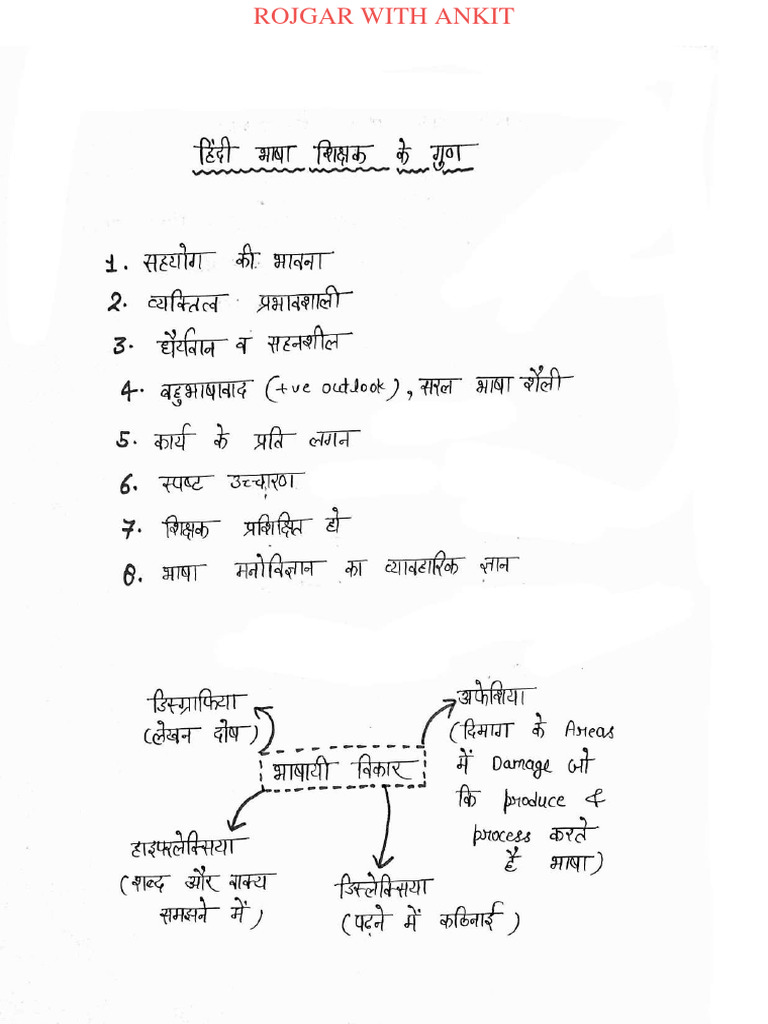 ROJGAR WITH ANKIT
हिंदी भाषा शिक्षक के गुण
1. सहयोग की भावना
2. व्यक्तित्व प्रभावशाली
3. धैर्यवान व सहनशील
4. बहुभाषावाद (+ve outlook), सरल भाषा शैली
5. कार्य के प्रति लगन
6. स्पष्ट उच्चारण
7. शिक्षक प्रशिक्षित हो
8. भाषा मनोविज्ञान का व्यावहारिक ज्ञान
डिस्ग्राफिया
(लेखन दोष)
अफेशिया
(दिमाग के Areas
में Damage जो
कि produce &
process करते
है भाषा)
भाषायी विकार
हाइपरलेक्सिया
(शब्द और वाक्य
समझने में)
डिस्लेक्सिया
(पढ़ने में कठिनाई)